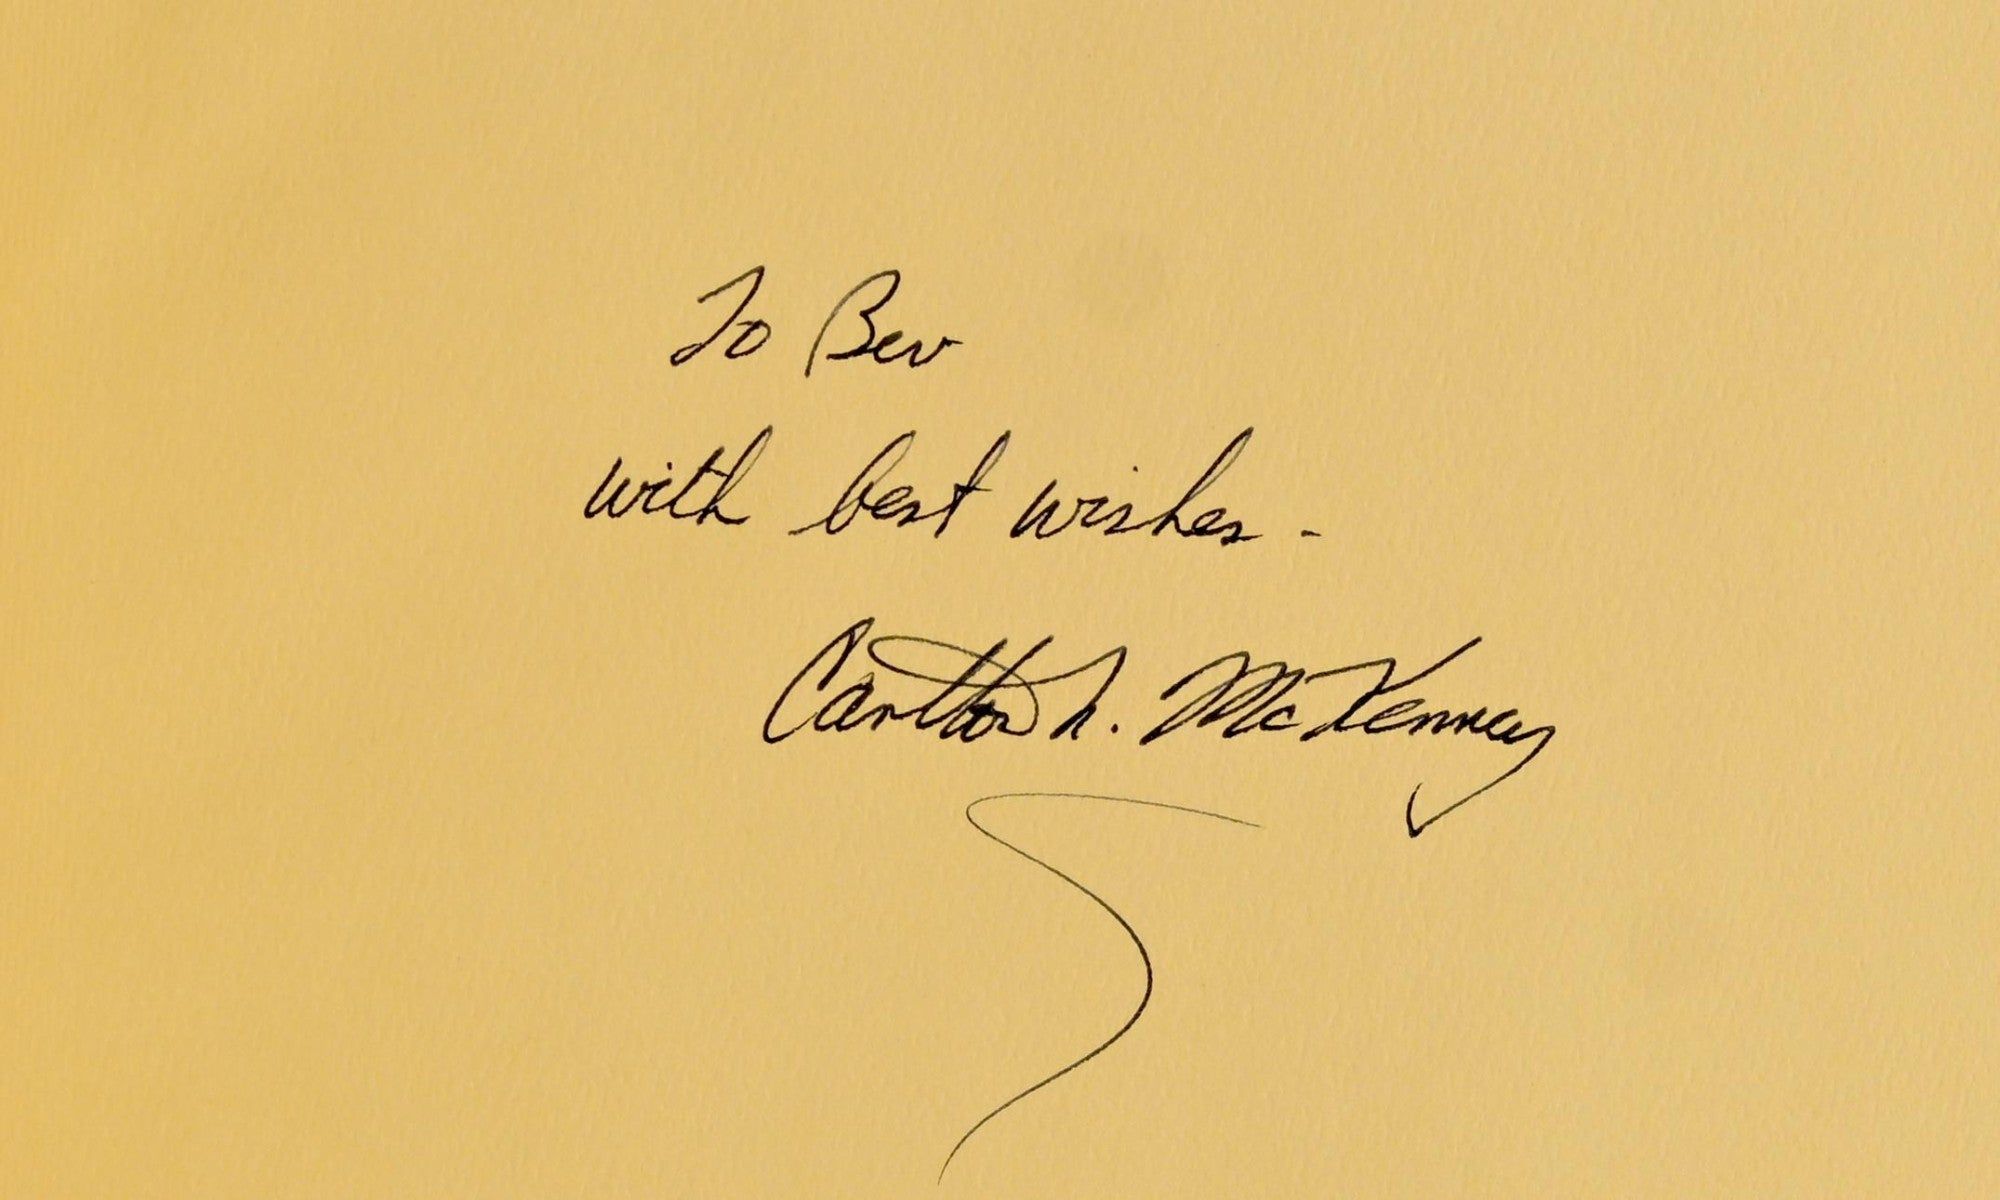 To Bev
with best wishes -
Carlton N. McKenney